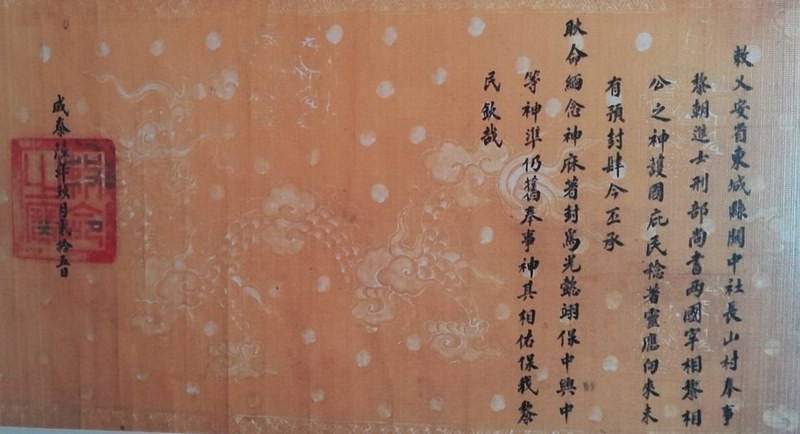 敕乂安省東城縣關中社長山村奉事
黎朝進士刑部尚書兩國宰相黎相
公之神護國庇民稔著靈應向來未
有預封肆今丕承
耿命緬念神庥著封為光懿翊保中興中
等神準仍舊奉事神其相佑保我黎
民欽哉
成泰年玖月貳拾五日